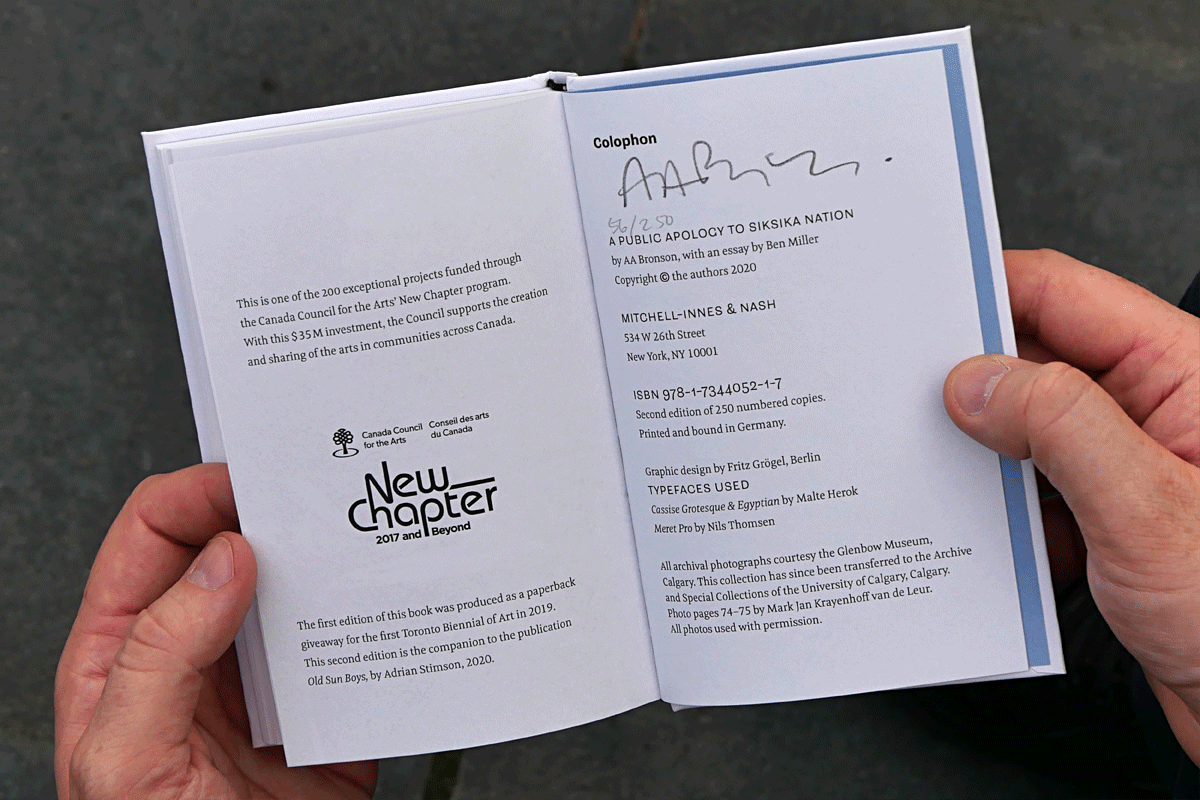 This is one of the 200 exceptional projects funded through
the Canada Council for the Arts' New Chapter program.
With this $35 M investment, the Council supports the creation
and sharing of the arts in communities across Canada.
Canada Council
for the Arts
Conseil des arts
du Canada
New
Chapter
2017 and Beyond
The first edition of this book was produced as a paperback
giveaway for the first Toronto Biennial of Art in 2019.
This second edition is the companion to the publication
Old Sun Boys, by Adrian Stimson, 2020.
Colophon
AA Bronson.
56/250
A PUBLIC APOLOGY TO SIKSIKA NATION
by AA Bronson, with an essay by Ben Miller
Copyright © the authors 2020
MITCHELL-INNES & NASH
534 W 26th Street
New York, NY 10001
ISBN 978-1-7344052-1-7
Second edition of 250 numbered copies.
Printed and bound in Germany.
Graphic design by Fritz Grögel, Berlin
TYPEFACES USED
Cassise Grotesque & Egyptian by Malte Herok
Meret Pro by Nils Thomsen
All archival photographs courtesy the Glenbow Museum,
Calgary. This collection has since been transferred to the Archive
and Special Collections of the University of Calgary, Calgary.
Photo pages 74–75 by Mark Jan Krayenhoff van de Leur.
All photos used with permission.